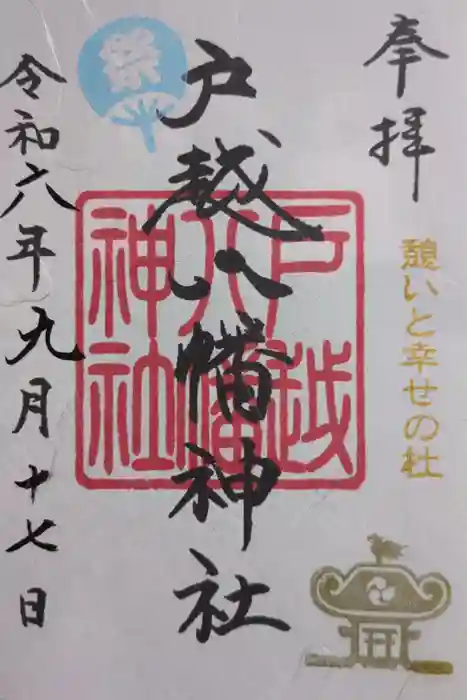 奉拝
憩いと幸せの杜
戸越八幡神社
戸越
八幡
神社
祭
令和六年九月十七日